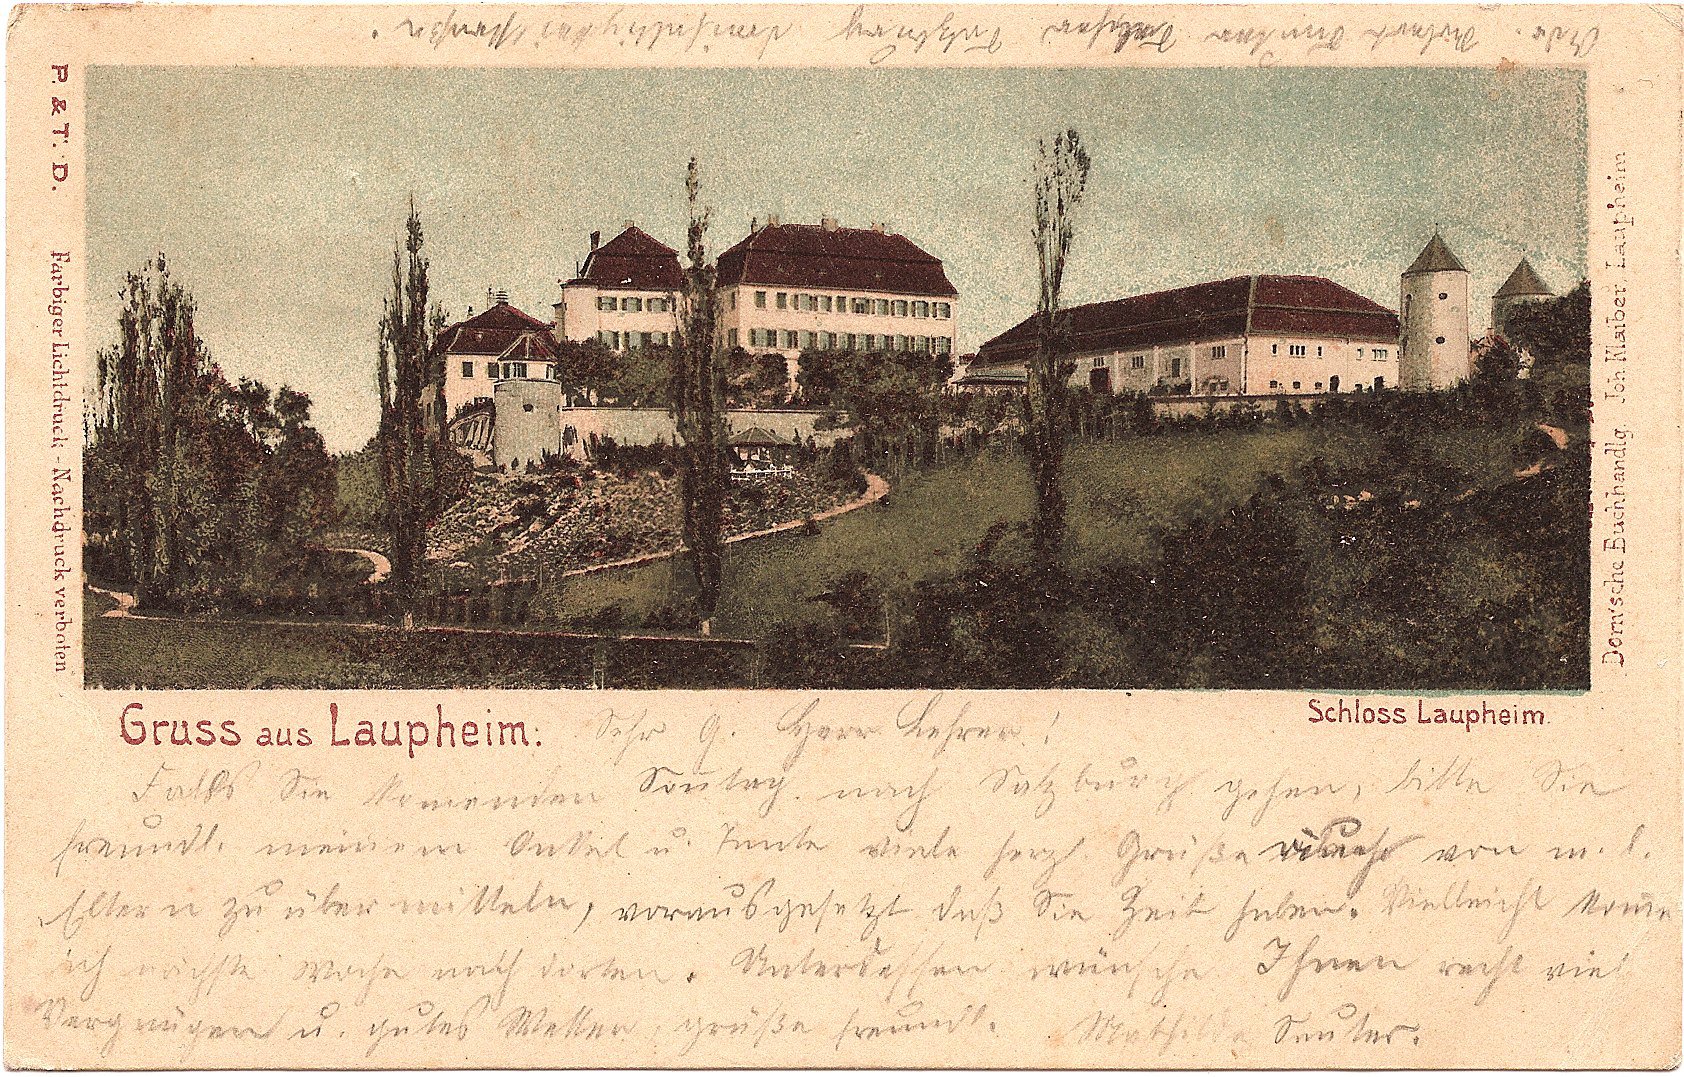 P. & T. D. Farbiger Lichtdruck - Nachdruck verboten
Dorn'sche Buchhandlg. Joh. Klaiber Laupheim
Schloss Laupheim.
Gruss aus Laupheim: Sehr g. Herr Lehrer!
Falls Sie komenden Sontag nach Salzburg gehen, bitte Sie
freundl. meinem Onkel u. Tante viele herzl. Grüße von m. l.
Eltern zu übermitteln, vorausgesetzt daß Sie Zeit haben. Vielleicht kome
ich nächste Woche nach dorten. Unterdessen wünsche Ihnen recht viel
Vergnügen u. gutes Wetter grüße freundl. Mathilde Sauter.